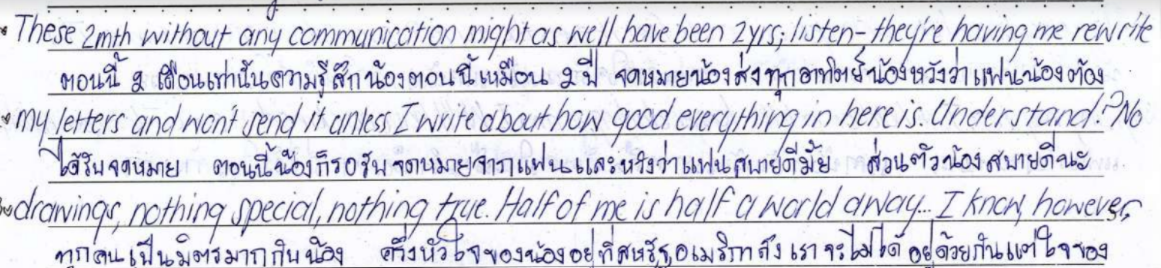 These 2mth without any communication might as well have been 2yrs; listen- they're having me rewrite
ตอนนี้ 2 เดือนเท่านั้นความรู้สึกน้องตอนนี้เหมือน 2 ปี จดหมายน้องส่งทุกอาทิตย์น้องหวังว่าแฟนน้องต้อง
my letters and won't send it unless I write about how good everything in here is. Understand!? No
ได้รับจดหมาย ตอนนี้น้องก็รอรับจดหมายจากแฟนและหวังว่าแฟนสบายดีมั้ย ส่วนตัวน้องสบายดีนะ
drawings, nothing special, nothing true. Half of me is half a world away... I know, however,
ทุกคนเป็นมิตรมากกับน้อง ครึ่งหัวใจของน้องอยู่ที่สหรัฐอเมริกาถึงเราจะไม่ได้อยู่ด้วยกันแต่ใจของ